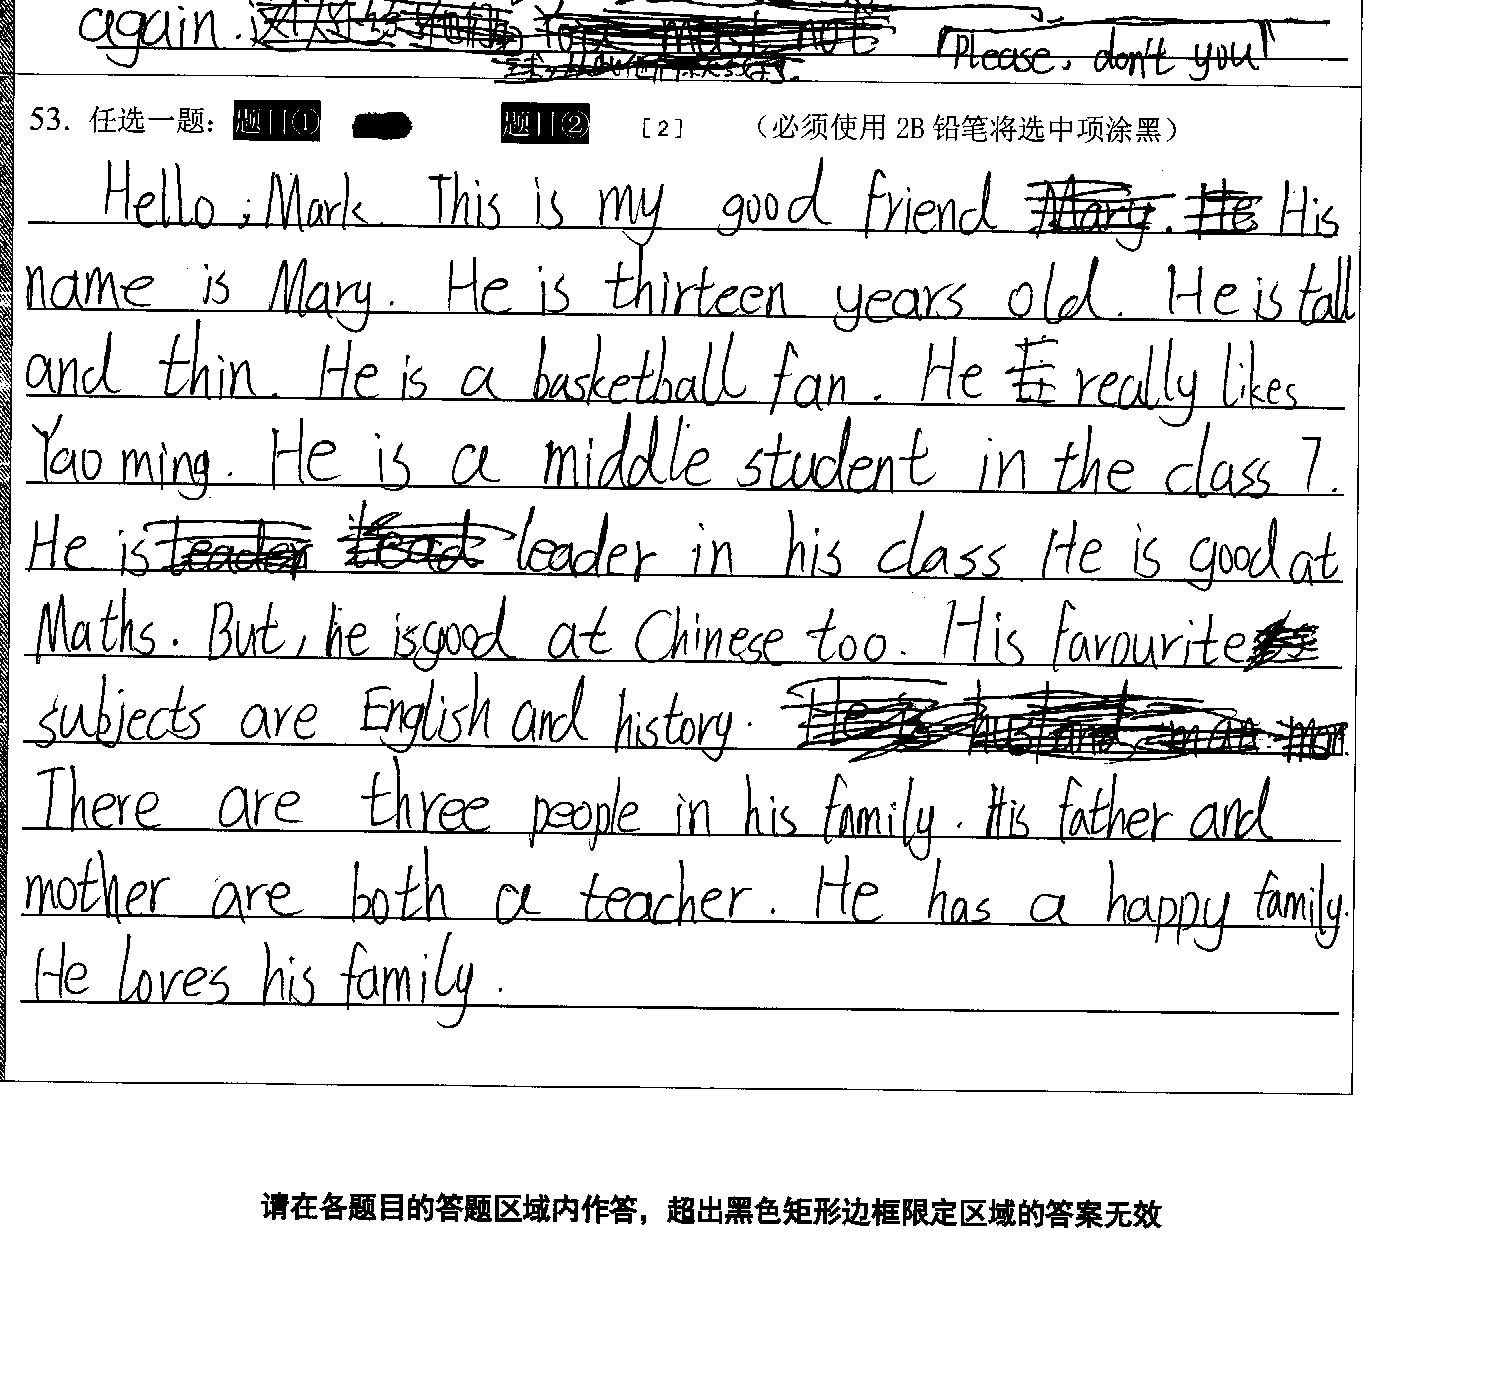 again. Please, don't you
53. 任选一题： 题目① 题目② [2] （必须使用 2B 铅笔将选中项涂黑）
Hello, Mark. This is my good friend His
name is Mary. He is thirteen years old. He is tall
and thin. He is a basketball fan. He really likes
Yao ming. He is a middle student in the class 7.
He is leader in his class He is good at
Maths. But, he is good at Chinese too. His favourite
subjects are English and history.
There are three people in his family. His father and
mother are both a teacher. He has a happy family.
He loves his family.
请在各题目的答题区域内作答，超出黑色矩形边框限定区域的答案无效